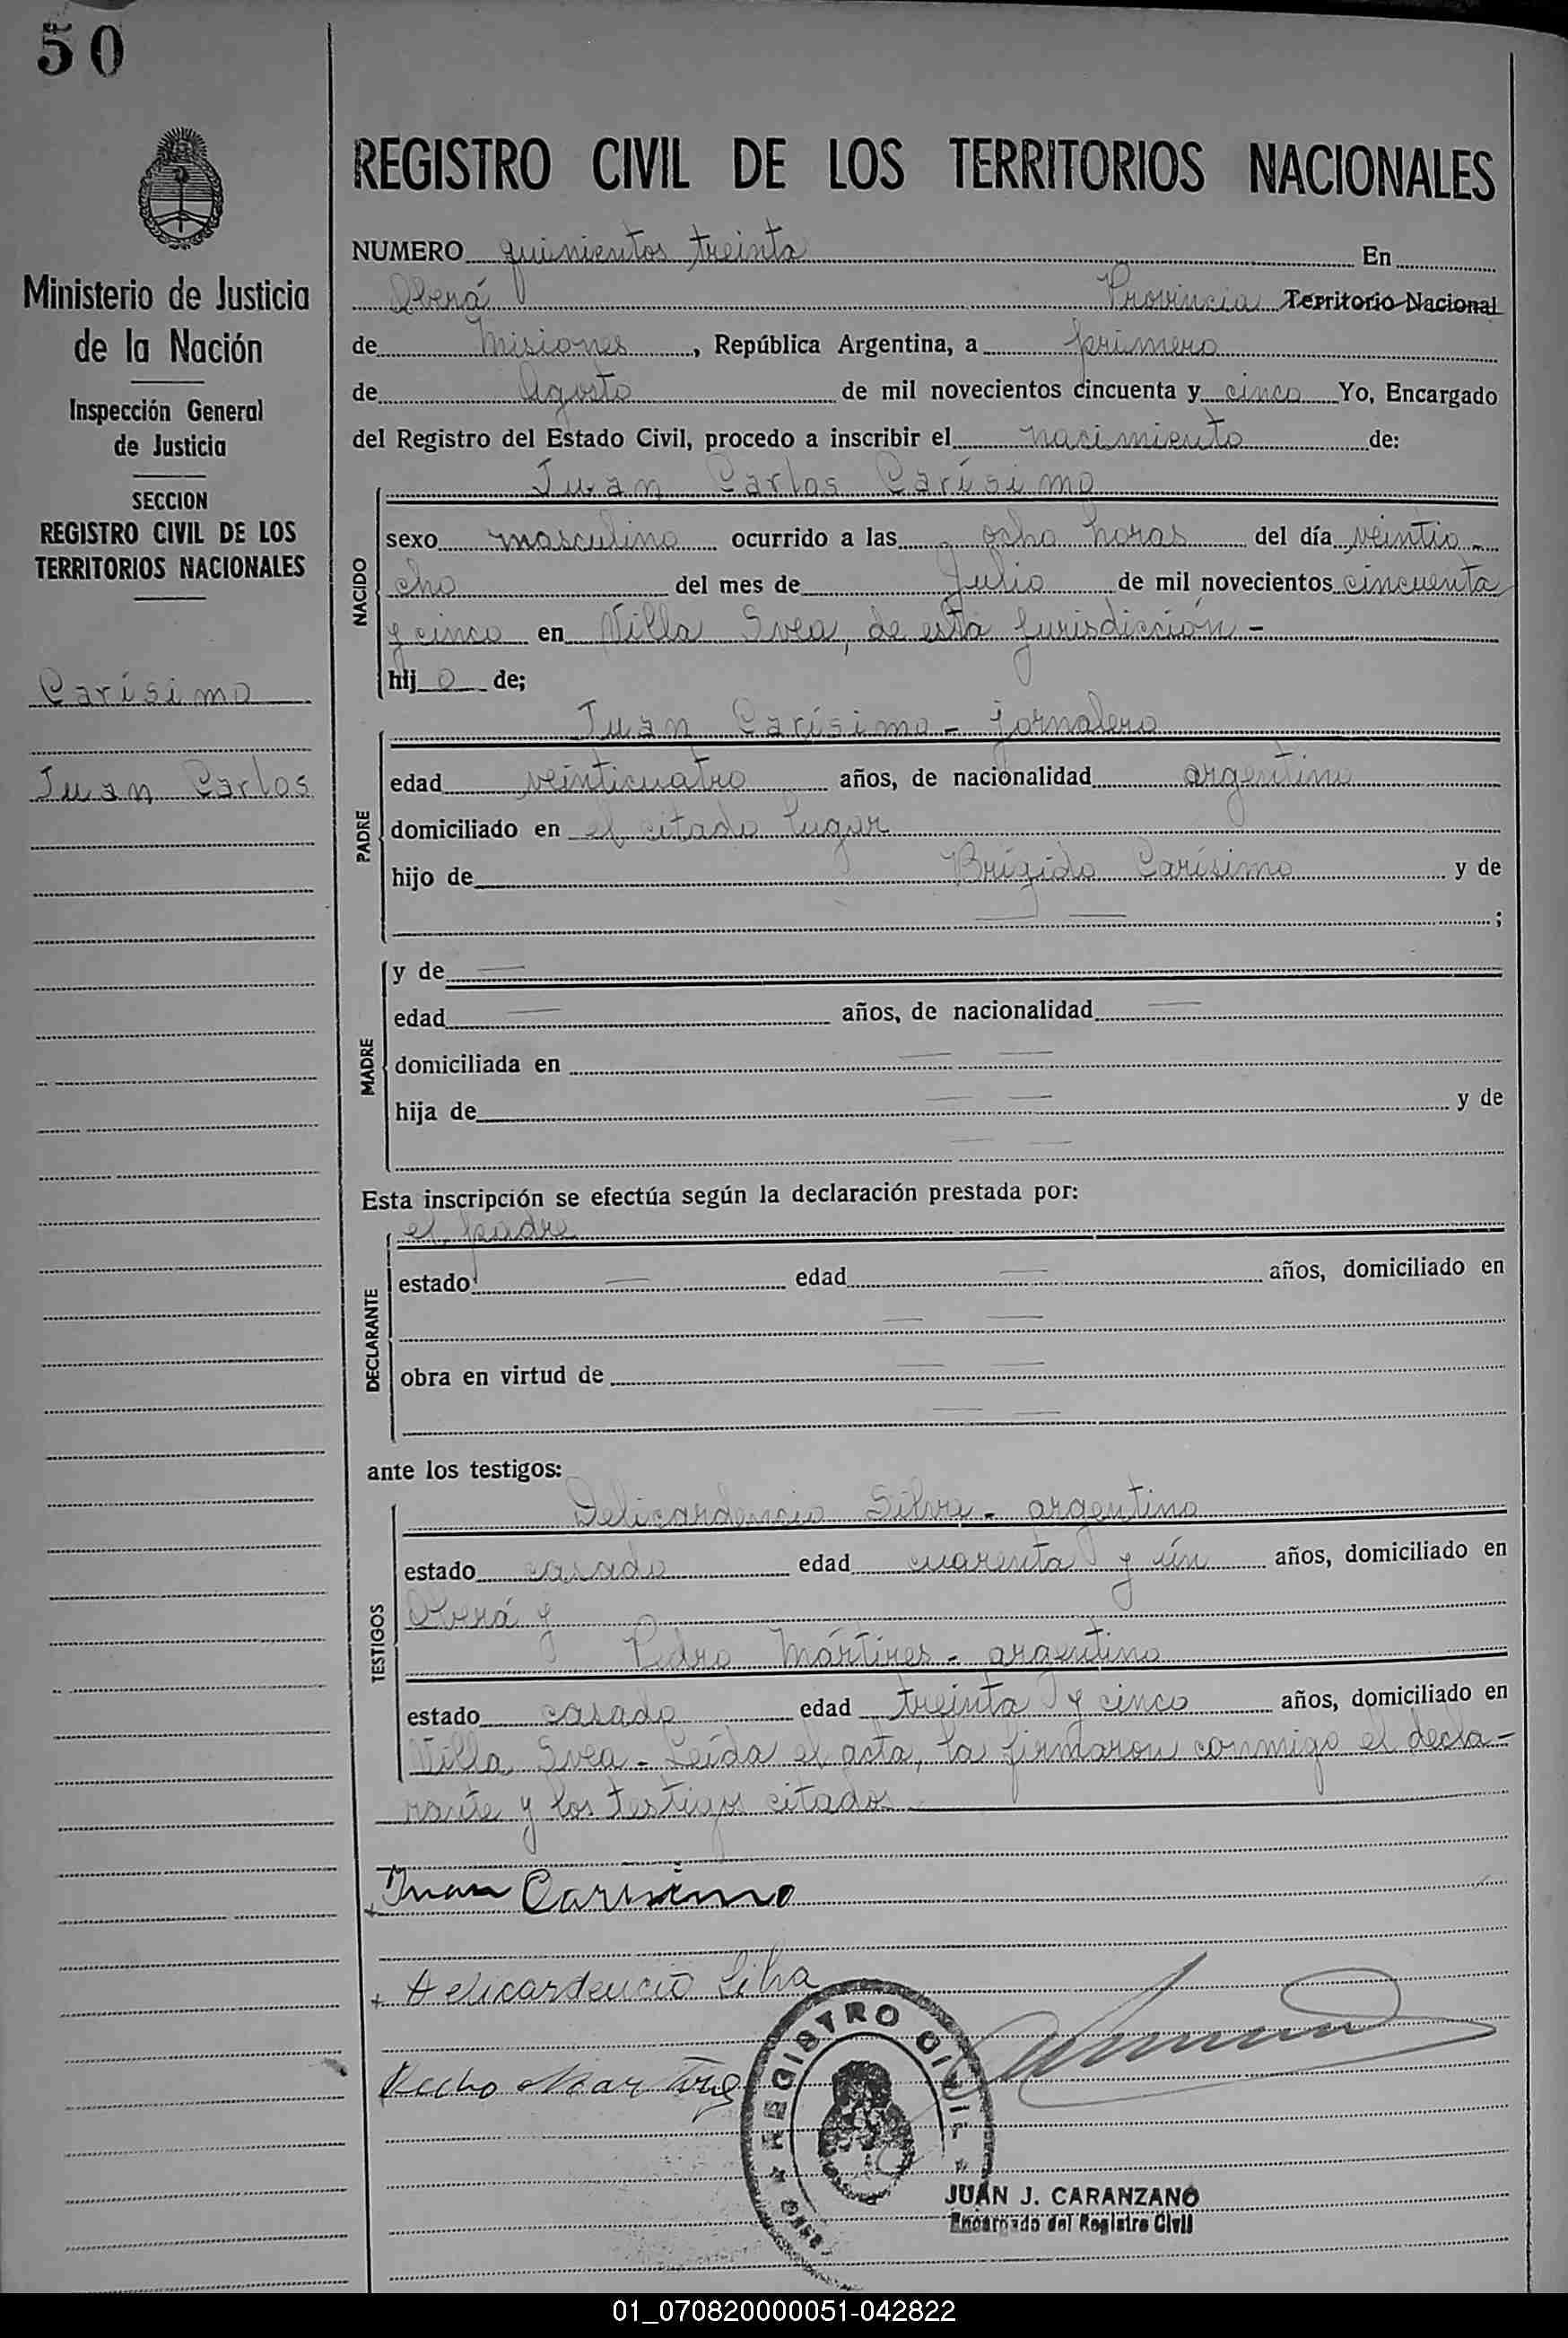 50
Ministerio de Justicia
de la Nación
Inspección General
de Justicia
SECCION
REGISTRO CIVIL DE LOS
TERRITORIOS NACIONALES
Carísimo
Juan Carlos
REGISTRO CIVIL DE LOS TERRITORIOS NACIONALES
NUMERO quinientos treinta En
Oberá Provincia Territorio Nacional
de Misiones, República Argentina, a primero
de Agosto de mil novecientos cincuenta y cinco Yo, Encargado
del Registro del Estado Civil, procedo a inscribir el nacimiento de:
Juan Carlos Carísimo
NACIDO
sexo masculino ocurrido a las ocho horas del día veintio-
cho del mes de Julio de mil novecientos cincuenta
y cinco en Villa Svea, de esta jurisdicción -
hij o de;
Juan Carísimo - jornalero
PADRE
edad veinticuatro años, de nacionalidad argentino
domiciliado en el citado lugar
hijo de Brígido Carísimo y de
— — ;
MADRE
y de —
edad — años, de nacionalidad —
domiciliada en — —
hija de — — y de
— —
Esta inscripción se efectúa según la declaración prestada por:
el padre
DECLARANTE
estado — edad — años, domiciliado en
— —
obra en virtud de — —
— —
ante los testigos:
TESTIGOS
Delicardencio Silva - argentino
estado casado edad cuarenta y ún años, domiciliado en
Oberá y
Pedro Mártires - argentino
estado casado edad treinta y cinco años, domiciliado en
Villa Svea - Leída el acta, la firmaron conmigo el decla-
rante y los testigos citados
Juan Carisimo
+ Delicardencio Silva
REGISTRO CIVIL
JUAN J. CARANZANO
Encargado del Registro Civil
01_070820000051-042822